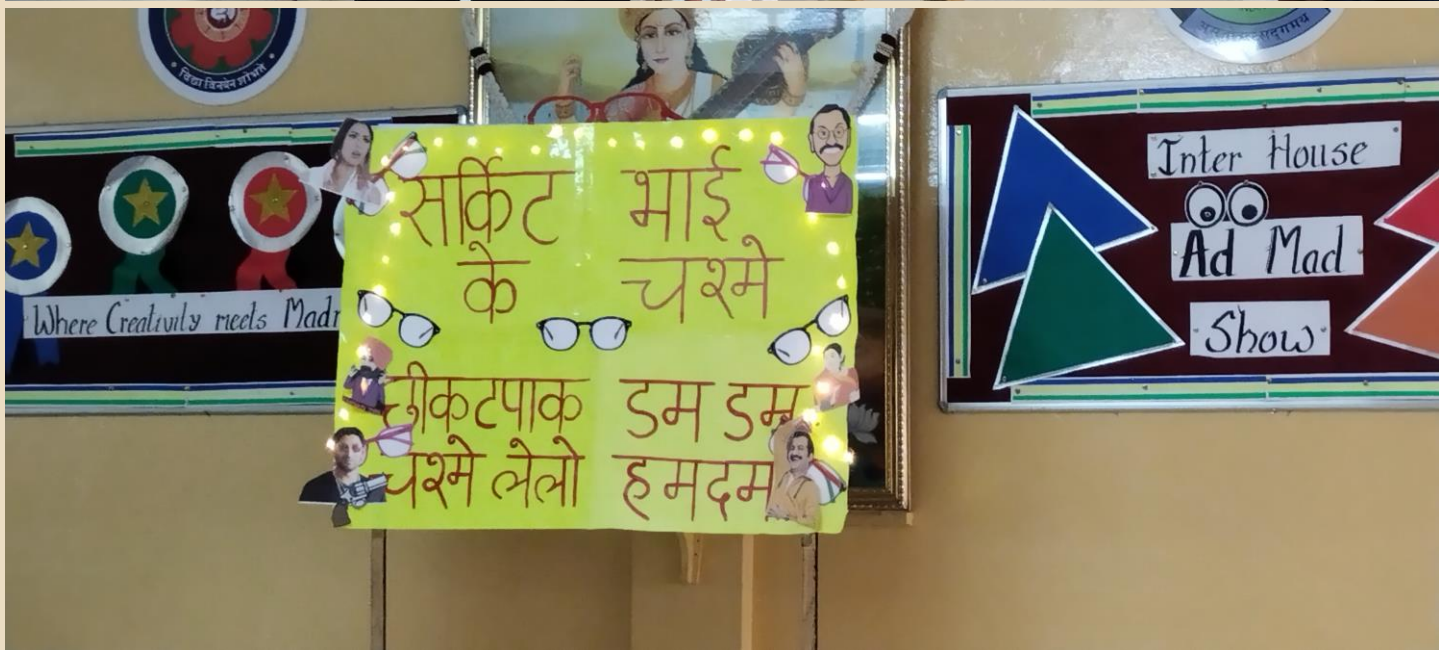 विद्या विनयेन शोभते
Where Creativity meets
सर्किट भाई
के चश्मे
डम डम
चश्मे लेलो हमदम
Inter House
Ad Mad
Show